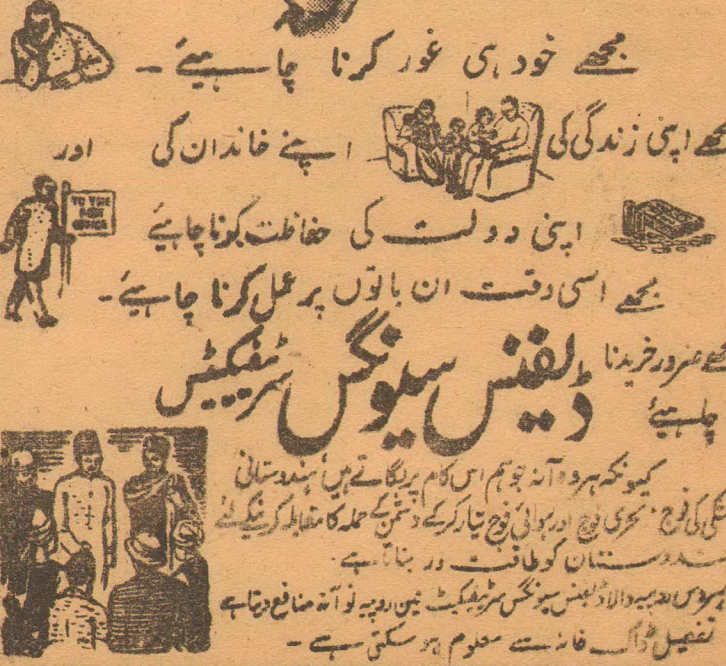 مجھے خود ہی غور کرنا چاہیئے ۔
اپنی زندگی کی اپنے خاندان کی اور
TO THE POST OFFICE
اپنی دولت کی حفاظت کرنا چاہیئے
مجھے اسی وقت ان باتوں پر عمل کرنا چاہیئے ۔
ضرور خریدنا چاہیئے
ڈیفنس سیونگس سرٹیفکیٹس
کیونکہ ہر وہ آنہ جو ہم اس کام پر لگاتے ہیں ہندوستانی
کی فوج ، بحری فوج اور ہوائی فوج تیار کرکے دشمن کے حملہ کا مقابلہ کرنیکے لئے
ہندوستان کو طاقت ور بناتا ہے ۔
ہر دس روپیہ والا ڈیفنس سیونگس سرٹیفکیٹ تین روپیہ نو آنہ منافع دیتا ہے
تفصیل ڈاک خانہ سے معلوم ہو سکتی ہے ۔